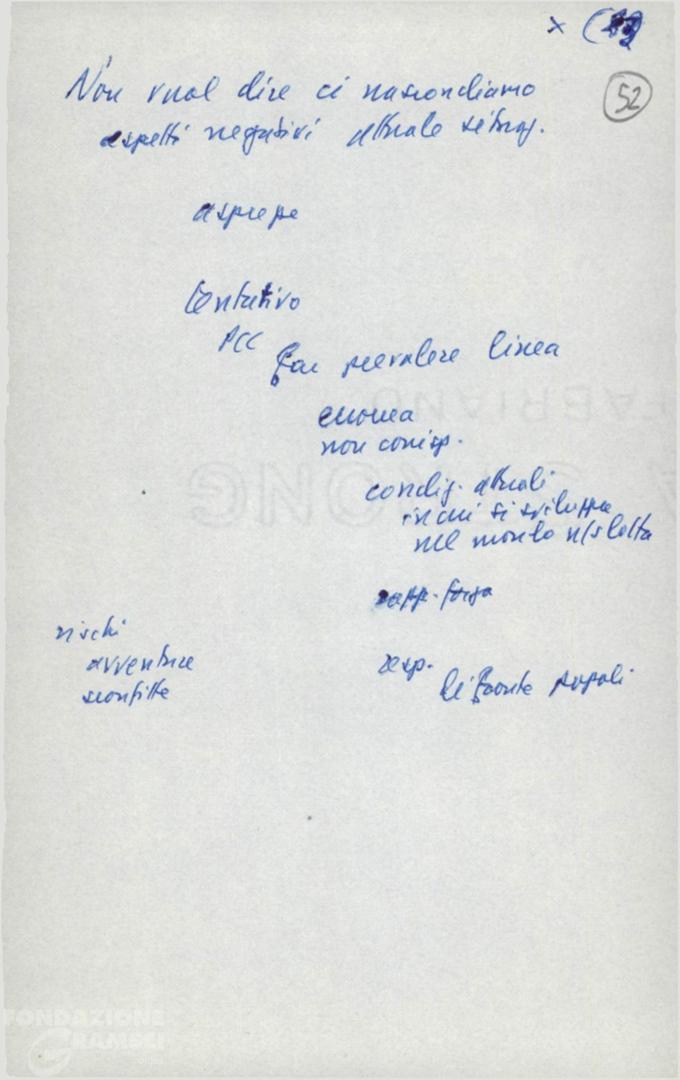 x
52
Non vuol dire ci nascondiamo
aspetti negativi attuale situaz.
asprezze
tentativo
PCC
far prevalere linea
erronea
non corrisp.
condiz. attuali
in cui si sviluppa
nel mondo n/s lotta
rapp. forza
rischi
avventure
sconfitte
resp.
di fronte popoli
FABRIANO
FONDAZIONE
GRAMSCI